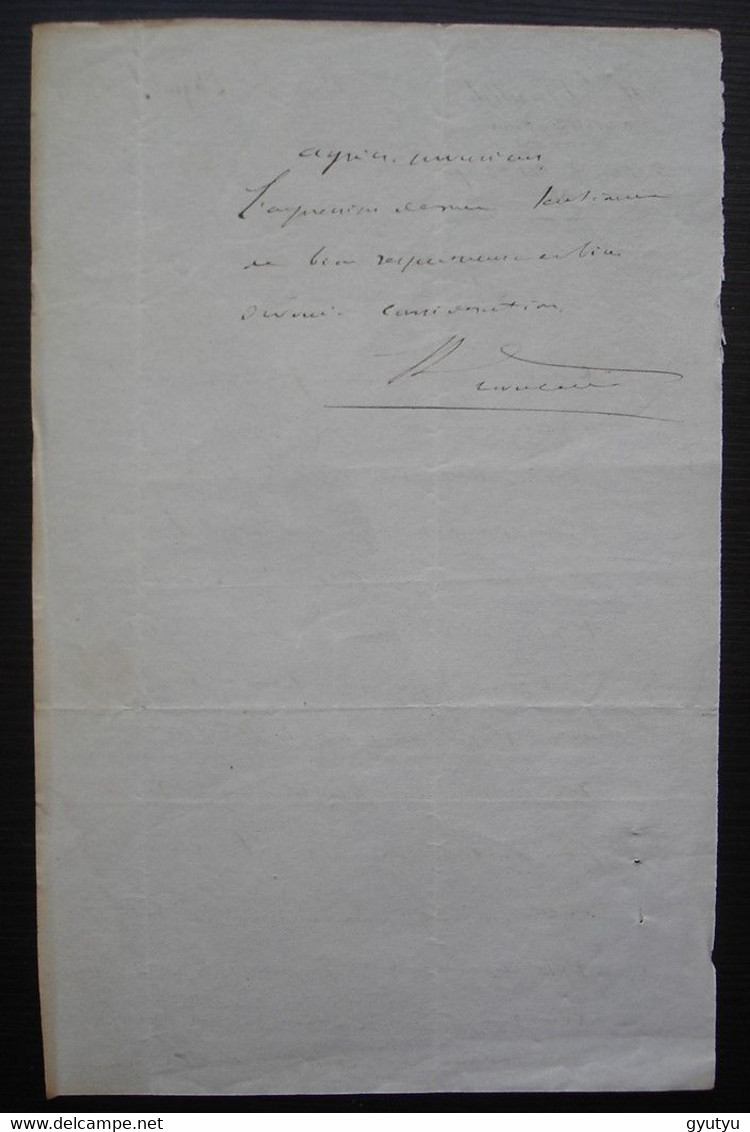 agréer, monsieur,
l'expression de mes sentiments
de bien respectueuse et bien
dévouée considération.
delcampe.net
gyutyu